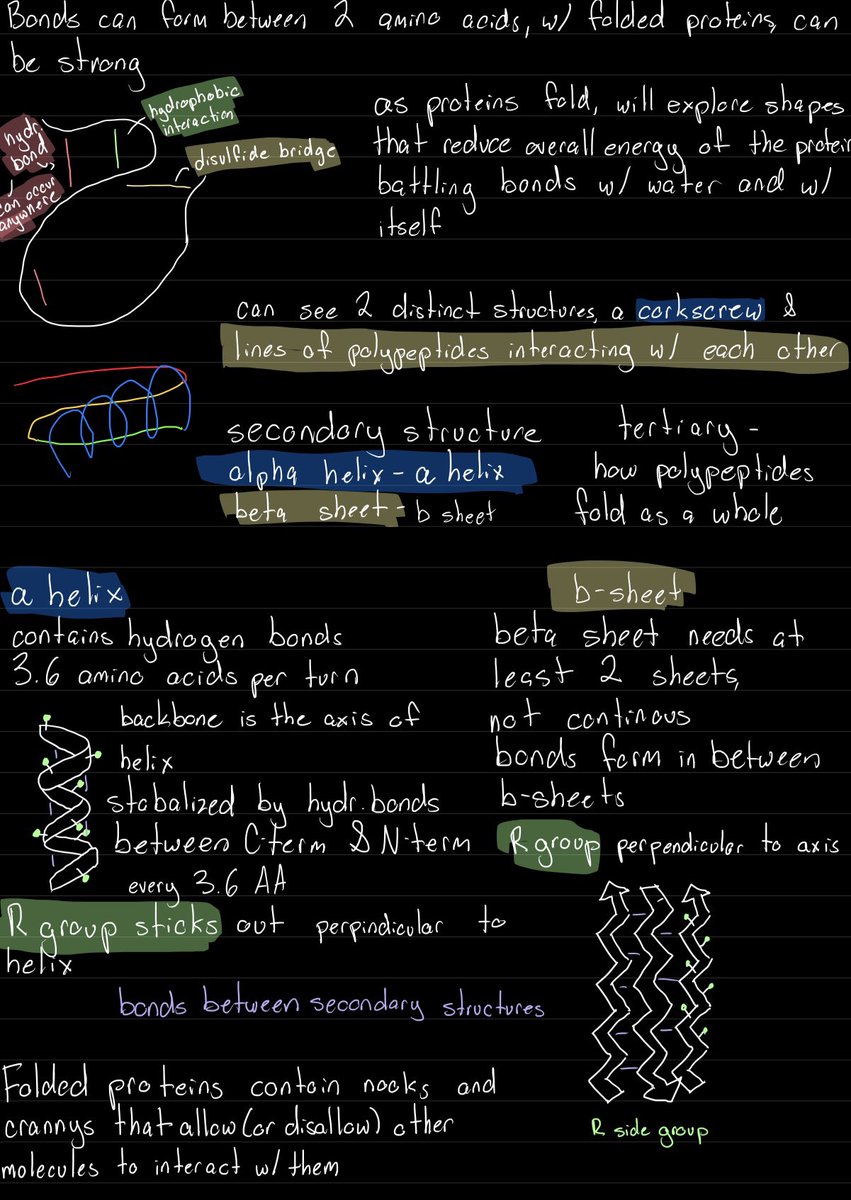 Bonds can form between 2 amino acids, w/ folded proteins, can
be strong
hydrophobic
interaction
hydr.
bond
disulfide bridge
can occur
anywhere
as proteins fold, will explore shapes
that reduce overall energy of the protein
battling bonds w/ water and w/
itself
can see 2 distinct structures, a corkscrew &
lines of polypeptides interacting w/ each other
secondary structure
alpha helix - a helix
beta sheet - b sheet
tertiary -
how polypeptides
fold as a whole
a helix
contains hydrogen bonds
3.6 amino acids per turn
backbone is the axis of
helix
stabalized by hydr. bonds
between C-term & N-term
every 3.6 AA
R group sticks out perpindicular to
helix
b-sheet
beta sheet needs at
least 2 sheets,
not continous
bonds form in between
b-sheets
R group perpendicular to axis
bonds between secondary structures
R side group
Folded proteins contain nooks and
crannys that allow (or disallow) other
molecules to interact w/ them